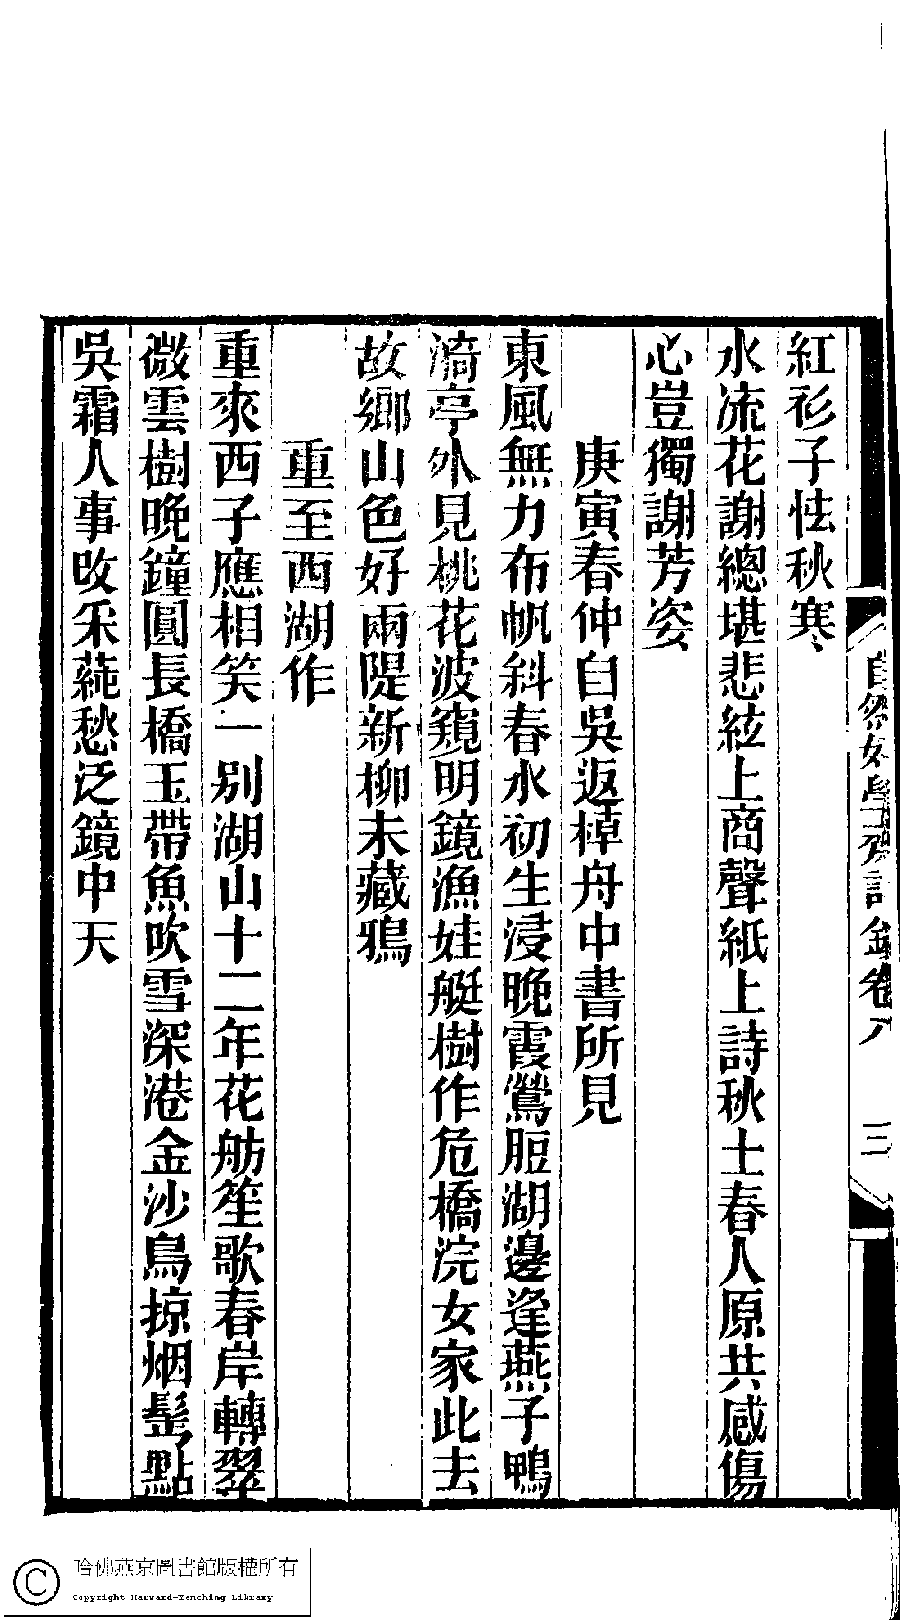 紅衫子怯秋寒
水流花謝總堪悲絃上商聲紙上詩秋士春人原共感傷
心豈獨謝芳姿
庚寅春仲自吳返棹舟中書所見
東風無力布帆斜春水初生浸晚霞鶯脰湖邊逢燕子鴨
漪亭外見桃花波窺明鏡漁娃艇樹作危橋浣女家此去
故鄉山色好兩隄新柳未藏鴉
重至西湖作
重來西子應相笑一別湖山十二年花舫笙歌春岸轉翠
微雲樹晚鐘圓長橋玉帶魚吹雪深港金沙鳥掠烟髩點
吳霜人事改采蒓愁泛鏡中天
自然好學齋詩鈔卷八
三
哈佛燕京圖書館版權所有
Copyright Harvard-Yenching Library